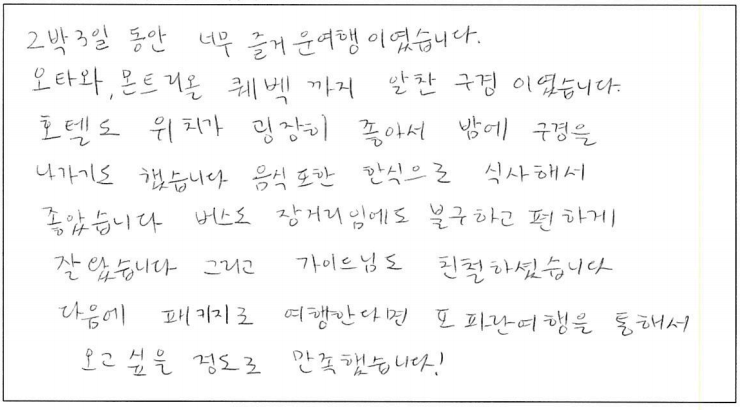 2박 3일 동안 너무 즐거운여행이였습니다.
오타와, 몬트리올 퀘벡 까지 알찬 구경 이였습니다.
호텔도 위치가 굉장히 좋아서 밤에 구경을
나가기도 했습니다 음식 또한 한식으로 식사해서
좋았습니다 버스도 장거리임에도 불구하고 편하게
잘 았습니다 그리고 가이드님도 친절하셨습니다
다음에 패키지로 여행한다면 또 파란여행을 통해서
오고 싶을 정도로 만족했습니다!